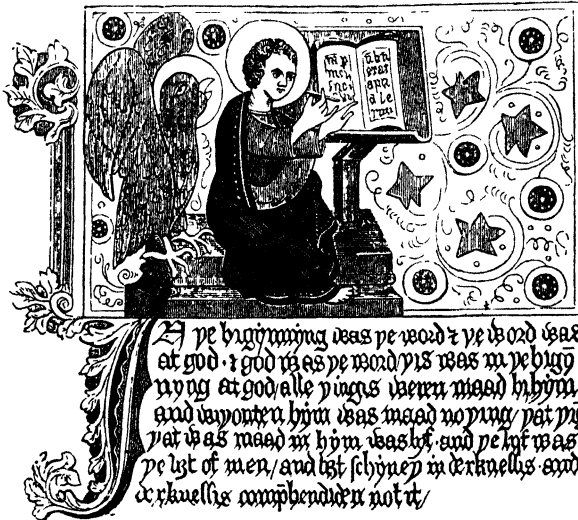 In ye bigynnyng was ye word & ye word was
at god · & god was ye word / yis was in ye bigyn̄
nyng at god / alle yingis weren maad bi hym
and wiyouten hym was maad no ying / yat yīg
yat was maad in hym was lyf · and ye lyf was
ye liȝt of men / and liȝt schyney in derknessis · and
derknessis comprehendiden not it /